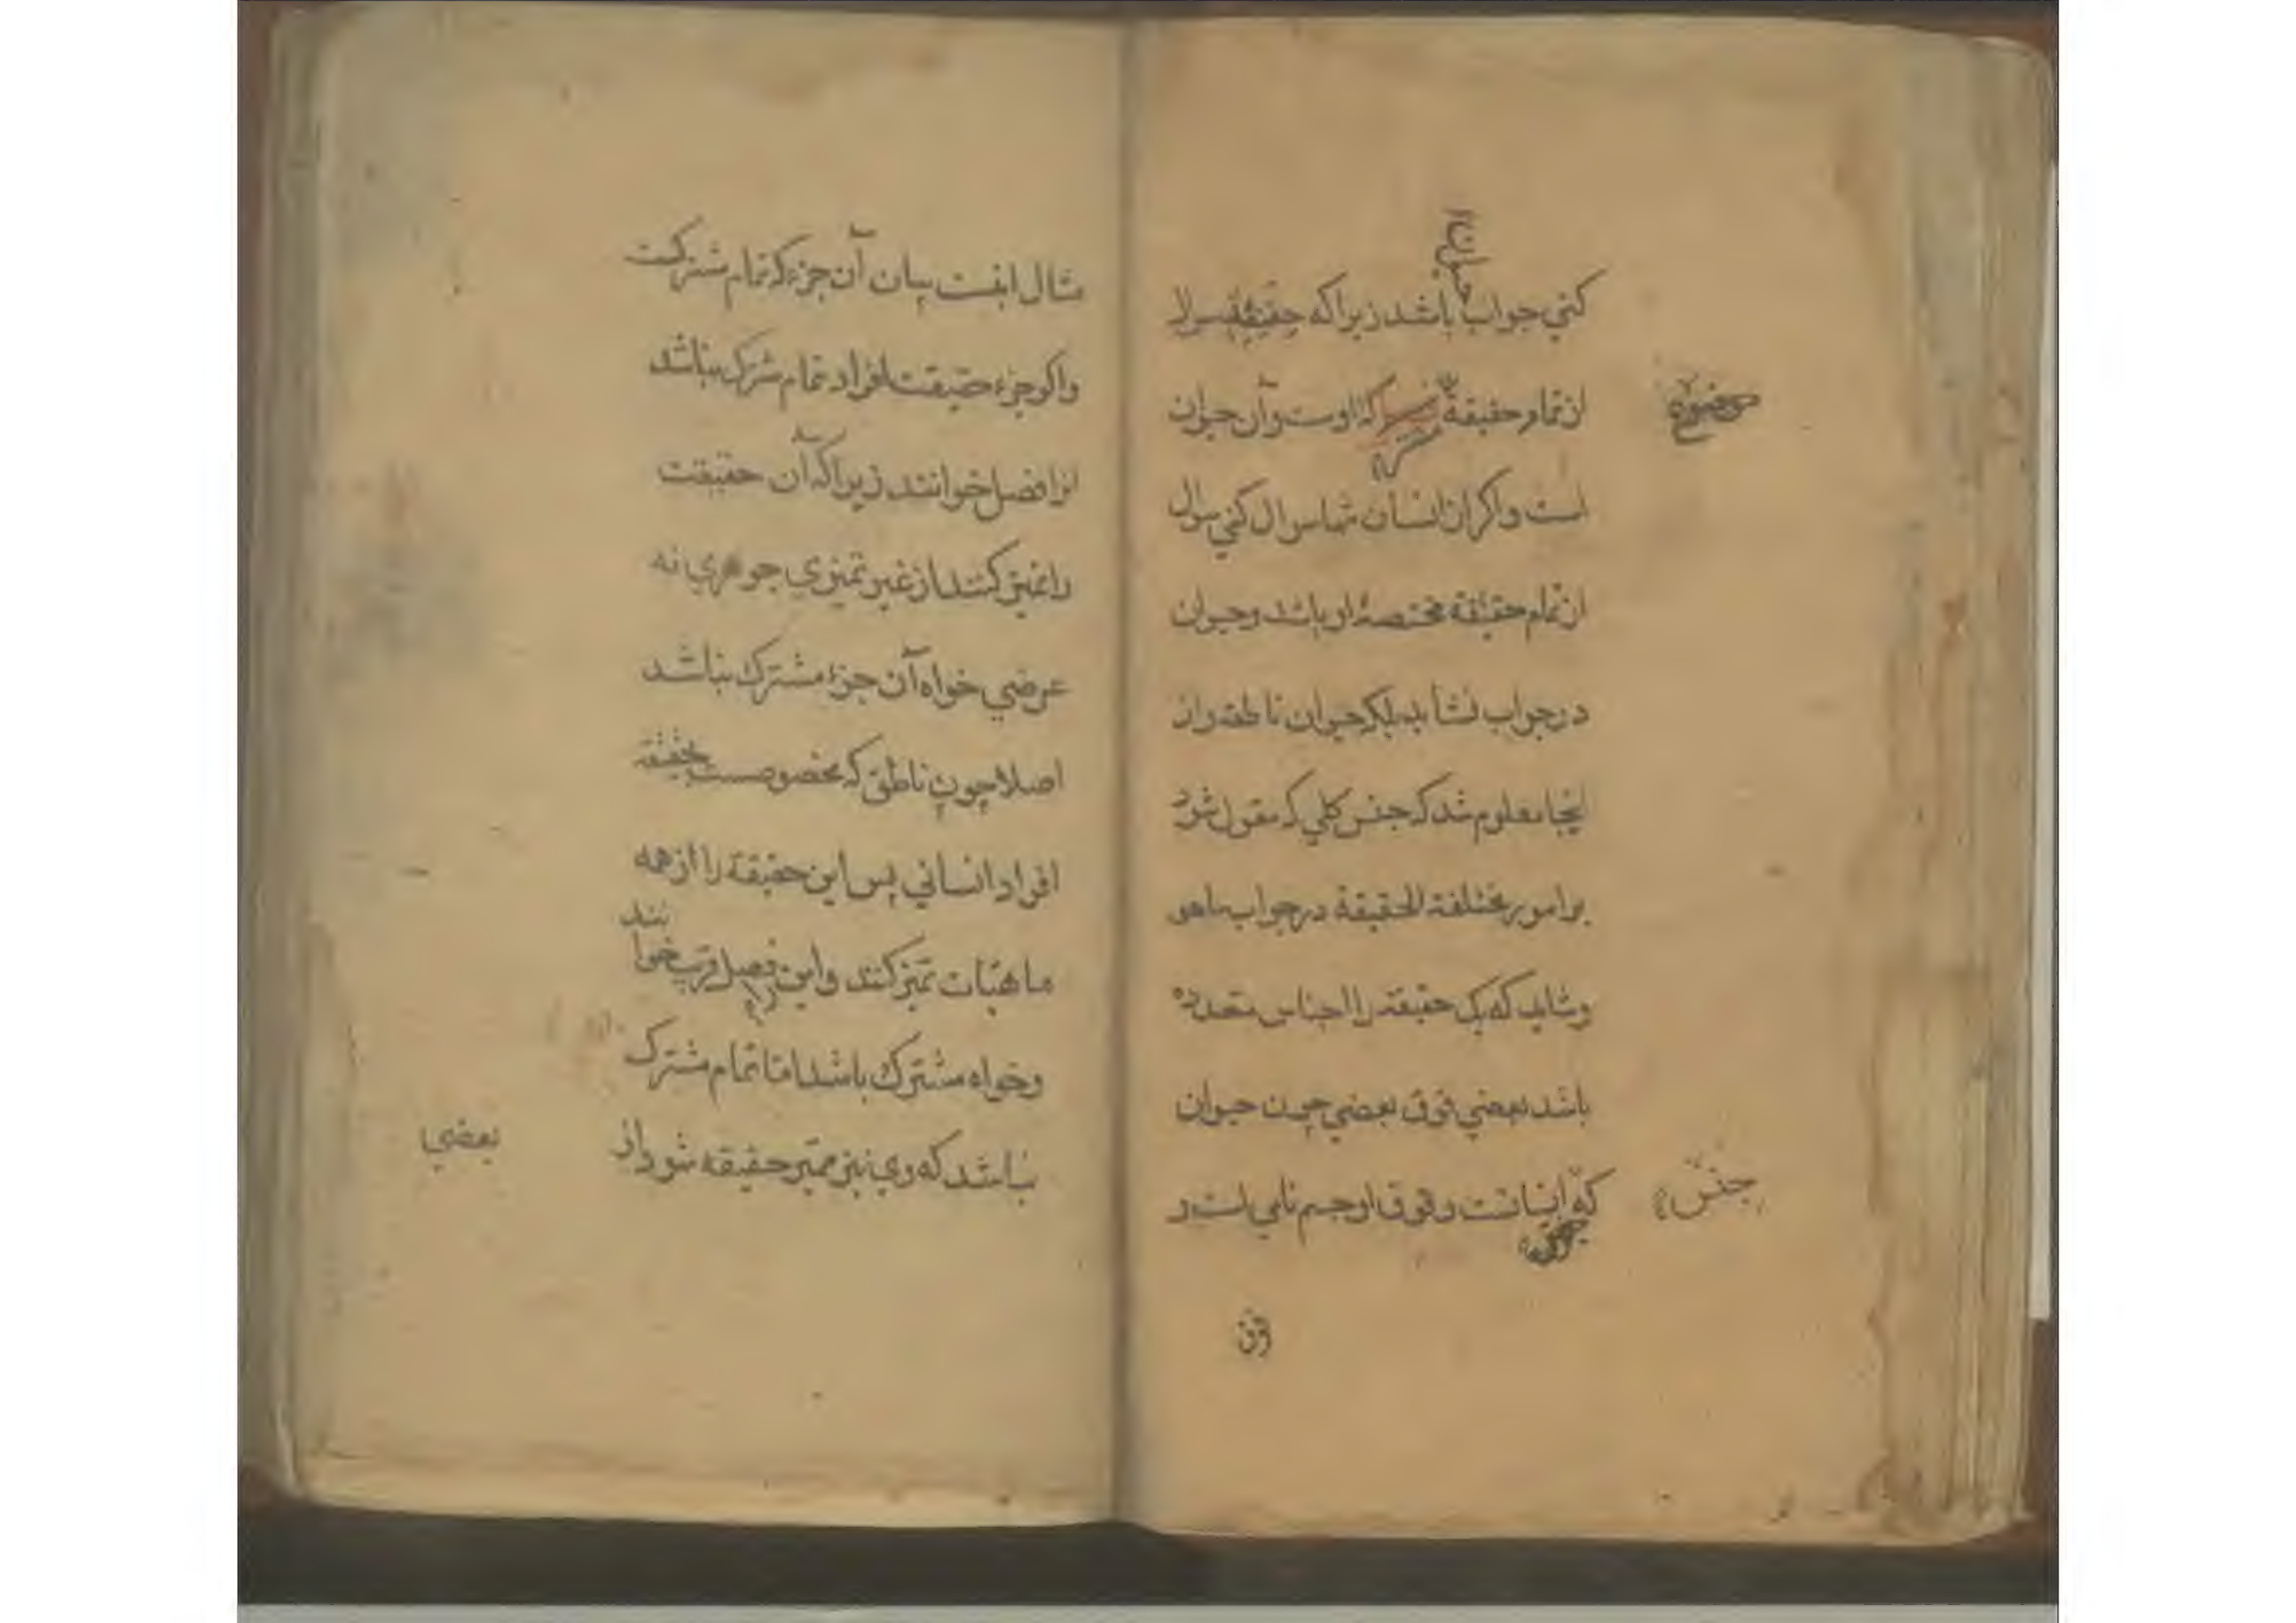 حیوان
کني جواب باشد زیرا که حقیقة سوال
از تمام حقیقة مشترکه اوست و آن حیوان
موضوع
است و اکر از انسان تنها سوال کني سوال
از تمام حقیقة مختصهٔ او باشد و حیوان
در جواب نشاید بلکه حیوان ناطق و از
اینجا معلوم شد که جنس کلي که مقول شود
بر امور مختلفة الحقیقة در جواب ماهو
و شاید که یک حقیقة را اجناس متعدده
باشد بعضي فوق بعضي چون حیوان
که انسانست و فوق او جسم نامي است و
جنس
فوق
مثال اینست بیان آن جزء که تمام مشترکست
و اکر جزء حقیقت افراد تمام مشترک نباشد
انرا فصل خوانند زیرا که آن حقیقت
را تمیز کنند از غیر تمیزي جوهري نه
عرضي خواه آن جزء مشترک نباشد
اصلا چون ناطق که مخصوصست بحقیقة
افراد انساني پس این حقیقة را از همه
ماهیات تمیز کند و این را فصل قریب خوانند
و خواه مشترک باشد اما تمام مشترک
نباشد که وي نیز ممیز حقیقة شود از
بعضي